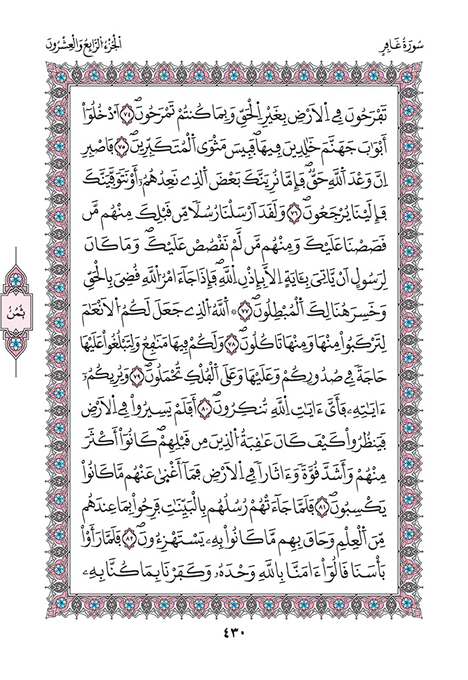 سُورَةُ غَافِرٍ
الْجُزْءُ الرَّابِعُ وَالْعِشْرُونَ
تَفْرَحُونَ فِي الْأَرْضِ بِغَيْرِ الْحَقِّ وَبِمَا كُنتُمْ تَمْرَحُونَ ٧٤ اَدْخُلُوٓاْ
أَبْوَٰبَ جَهَنَّمَ خَٰلِدِينَ فِيهَا فَبِيسَ مَثْوَى الْمُتَكَبِّرِينَ ٧٥ فَاصْبِرِ
اِنَّ وَعْدَ اللَّهِ حَقٌّ فَإِمَّا نُرِيَنَّكَ بَعْضَ الَّذِي نَعِدُهُمُۥٓ أَوْ نَتَوَفَّيَنَّكَ
فَإِلَيْنَا يُرْجَعُونَ ٧٦ وَلَقَدَ ارْسَلْنَا رُسُلًا مِّن قَبْلِكَ مِنْهُم مَّن
قَصَصْنَا عَلَيْكَ وَمِنْهُم مَّن لَّمْ نَقْصُصْ عَلَيْكَ وَمَا كَانَ
لِرَسُولٍ اَنْ يَّاتِيَ بِـَٔايَةٍ اِلَّا بِإِذْنِ اللَّهِ فَإِذَا جَآءَ امْرُ اللَّهِ قُضِيَ بِالْحَقِّ
وَخَسِرَ هُنَالِكَ الْمُبْطِلُونَ ٧٧ ۞ اللَّهُ الَّذِي جَعَلَ لَكُمُ الْأَنْعَٰمَ
لِتَرْكَبُواْ مِنْهَا وَمِنْهَا تَاكُلُونَ ٧٨ وَلَكُمْ فِيهَا مَنَٰفِعُ وَلِتَبْلُغُواْ عَلَيْهَا
حَاجَةً فِي صُدُورِكُمْ وَعَلَيْهَا وَعَلَى الْفُلْكِ تُحْمَلُونَ ٧٩ وَيُرِيكُمُۥٓ
ءَايَٰتِهِۦ فَأَيَّ ءَايَٰتِ اللَّهِ تُنكِرُونَ ٨٠ أَفَلَمْ يَسِيرُواْ فِي الْأَرْضِ
فَيَنظُرُواْ كَيْفَ كَانَ عَٰقِبَةُ الَّذِينَ مِن قَبْلِهِمْ كَانُوٓاْ أَكْثَرَ
مِنْهُمْ وَأَشَدَّ قُوَّةً وَءَاثَارًا فِي الْأَرْضِ فَمَآ أَغْنَىٰ عَنْهُم مَّا كَانُواْ
يَكْسِبُونَ ٨١ فَلَمَّا جَآءَتْهُمْ رُسُلُهُم بِالْبَيِّنَٰتِ فَرِحُواْ بِمَا عِندَهُم
مِّنَ الْعِلْمِ وَحَاقَ بِهِم مَّا كَانُواْ بِهِۦ يَسْتَهْزِءُونَ ٨٢ فَلَمَّا رَأَوْاْ
بَأْسَنَا قَالُوٓاْ ءَامَنَّا بِاللَّهِ وَحْدَهُۥ وَكَفَرْنَا بِمَا كُنَّا بِهِۦ
ثُمُنٌ
٤٣٠